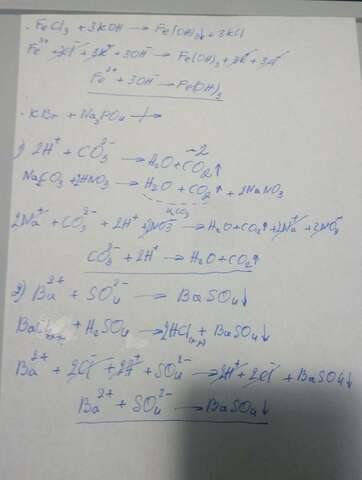 FeCl₃ + 3KOH → Fe(OH)₃↓ + 3KCl
Fe³⁺ + 3Cl⁻ + 3K⁺ + 3OH⁻ → Fe(OH)₃ + 3K⁺ + 3Cl⁻
Fe³⁺ + 3OH⁻ → Fe(OH)₃
KBr + Na₃PO₄ ↛
1) 2H⁺ + CO₃²⁻ → H₂O + CO₂↑
Na₂CO₃ + 2HNO₃ → H₂O + CO₂↑ + 2NaNO₃
H₂CO₃
2Na⁺ + CO₃²⁻ + 2H⁺ + 2NO₃⁻ → H₂O + CO₂↑ + 2Na⁺ + 2NO₃⁻
CO₃²⁻ + 2H⁺ → H₂O + CO₂↑
2) Ba²⁺ + SO₄²⁻ → BaSO₄↓
+ H₂SO₄ → 2HCl + BaSO₄↓
Ba²⁺ + 2Cl⁻ + 2H⁺ + SO₄²⁻ → 2H⁺ + 2Cl⁻ + BaSO₄↓
Ba²⁺ + SO₄²⁻ → BaSO₄↓